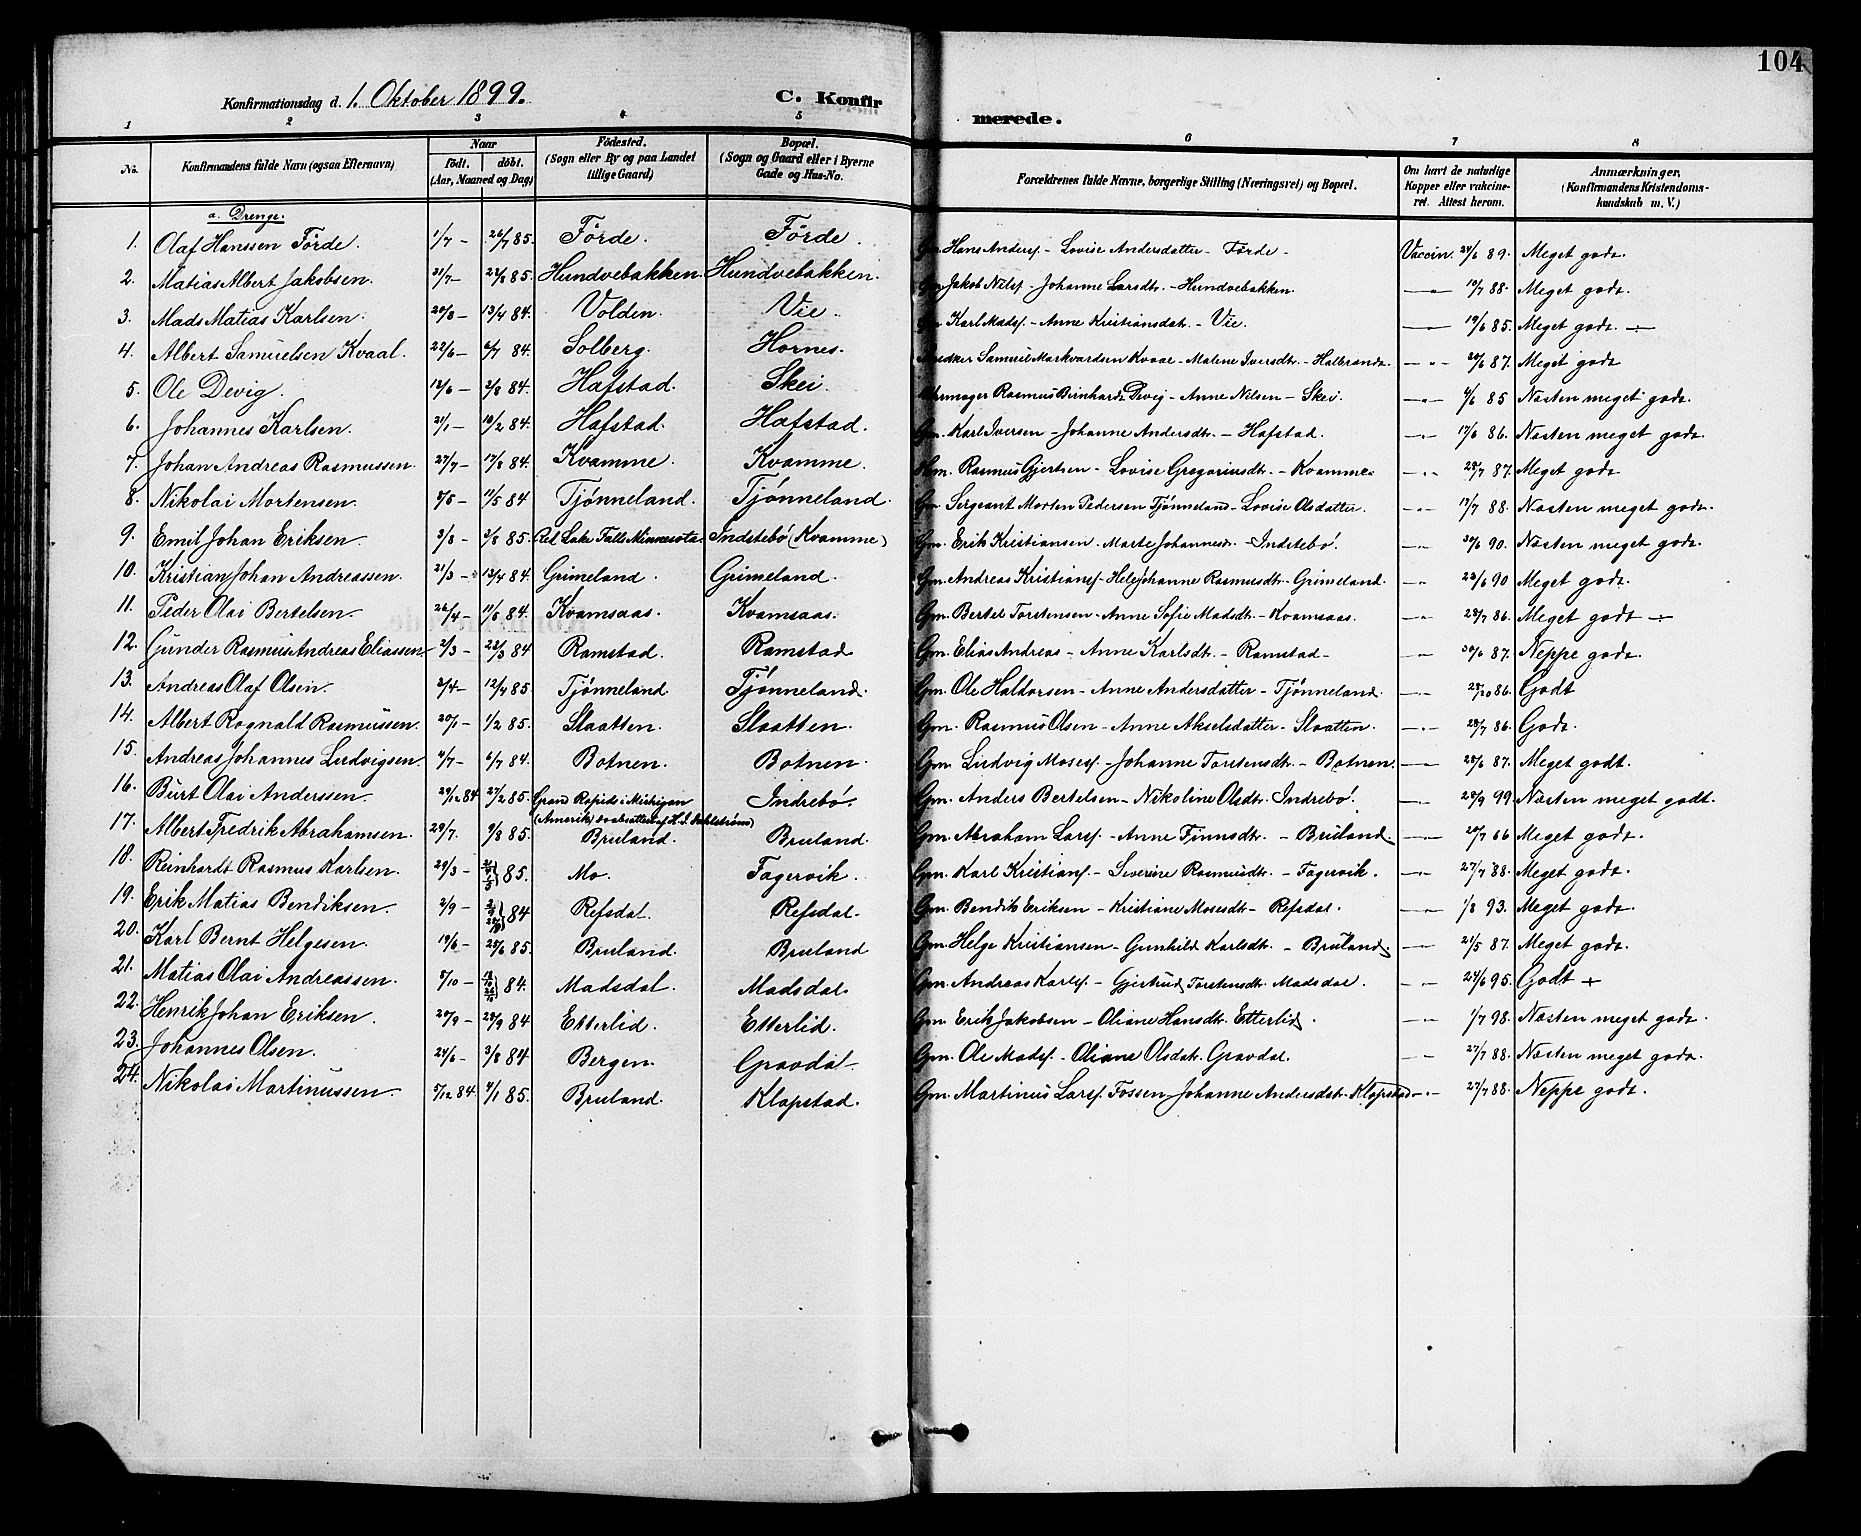 104
Konfirmationsdag d. 1. Oktober 1899.
C. Konfirmerede.
1 2 3 4 5 6 7 8
No. | Konfirmandens fulde Navn (ogsaa Efternavn) | Naar født. døbt. (Aar, Maaned og Dag) | Födested. (Sogn eller By og paa Landet tillige Gaard) | Bopæl. (Sogn og Gaard eller i Byerne Gade og Hus-No. | Forældrenes fulde Navne, borgerlige Stilling (Næringsvei) og Bopæl. | Om havt de naturlige Kopper eller vakcineret. Attest herom. | Anmærkninger. (Konfirmandens Kristendomskundskab m. V.)
a. Drenge.
1. Olaf Hanssen Förde. 1/7 – 26/7 85. Förde. Förde. Gm. Hans Anders. – Lovise Andersdatter – Förde – Vaccin. 24/6 89. Meget godt.
2. Matias Albert Jakobsen. 31/7 – 23/8 85. Hundvebakken. Hundvebakken. Gm. Jakob Nils. – Johanne Larsdtr. – Hundvebakken. —"— 19/7 88. Meget godt.
3. Mads Matias Karlsen. 20/3 – 13/4 84. Volden. Vie. Gm. Karl Mads. – Anne Kristiansdat. – Vie. —"— 19/6 85. Meget godt. –
4. Albert Samuelsen Kvaal. 22/6 – 6/7 84. Solberg. Hornes. Samuel Markvardsen Kvaal – Malene Iversdtr. – Halbrands. —"— 20/6 87. Meget godt
5. Ole Devig. 12/6 – 3/8 84. Hafstad. Skei. Uhrmager Rasmus Bernhards Devig – Anne Nilsen – Skei. —"— 4/6 85 Næsten meget godt.
6. Johannes Karlsen. 21/1 – 10/2 84. Hafstad. Hafstad. Gm. Karl Iversen – Johanne Andersdt. – Hafstad. —"— 17/6 86. Næsten meget godt.
7. Johan Andreas Rasmussen. 27/7 – 17/8 84. Kvamme. Kvamme. Hm. Rasmus Gjertsen – Lovise Gregoriusdt. – Kvamme. —"— 28/7 87. Meget godt
8. Nikolai Mortensen. 5/5 – 11/5 84 Tjønneland. Tjønneland. Gm. Sergeant Morten Pedersen Tjønneland – Lovise Olsdatter. —"— 19/7 88. Næsten meget godt.
9. Emil Johan Eriksen – 3/3 – 3/8 85. Red Lake Falls Minnesota. Indstebö (Kvamme) Gm. Erik Kristiansen. – Marte Johannesd. – Indstebö. —"— 30/6 90. Næsten meget godt.
10. Kristian Johan Andreassen. 21/3 – 13/4 84. Grimeland. Grimeland. Gm. Andreas Kristians. – Hele Johanne Rasmusdt. – Grimeland. —"— 22/6 90 Meget godt.
11. Peder Olai Bertelsen. 26/4 – 11/5 84. Kvamsaas. Kvamsaas. Gm. Bertel Torstensen – Anne Sofie Madsdt. – Kvamsaas. —"— 28/7 86. Meget godt –
12. Gunder Rasmus Andreas Eliassen – 2/3 – 23/3 84 Ramstad. Ramstad Gm. Elias Andreas – Anne Karlsdt. – Ramstad – —"— 30/6 87. Neppe godt.
13. Andreas Olaf Olsen. 2/4 – 12/4 85. Tjønneland Tjønneland. Gm. Ole Haldorsen – Anne Andersdatter – Tjønneland. —"— 28/10 86. Godt
14. Albert Ragnald Rasmussen. 20/1 – 1/2 85. Slaatten. Slaatten. Gm. Rasmus Olsen – Anne Akselsdatter – Slaatten. —"— 28/7 86. Godt.
15. Andreas Johannes Ludvigsen. 4/7 – 6/7 84. Botnen. Botnen. Gm. Ludvig Moses. – Johanne Torstensdt. – Botnen. —"— 28/6 87. Meget godt.
16. Burt Olai Anderssen. 29/12 84 27/2 85. Grand Rapids i Michigan (Amerik) Indrebö. Gm. Anders Bertelsen – Nikoline Olsdt. Indrebö. —"— 28/9 99. Næsten meget godt.
17. Albert Fredrik Abrahamsen. 29/7. 9/8 85. Bruland. Bruland. Gm. Abraham Lars. – Anne Finnsdt. – Bruland. —"— 20/7 66 Meget godt.
18. Reinhardt Rasmus Karlsen. 29/3 – 85. Mo. Fagervik. Gm. Karl Kristians. – Severine Rasmusdt. – Fagervik. —"— 27/7 88. Meget godt.
19. Erik Matias Bendiksen. 2/9 – 84 Refsdal. Refsdal. Gm. Bendik Eriksen – Kristiane Mosesdt. – Refsdal. —"— 1/8 93. Meget godt.
20. Karl Bernt Helgesen. 19/6 – 28/6 85. Bruland. Bruland Gm. Helge Kristiansen – Gunhild Karlsdt. – Bruland. —"— 21/5 87. Meget godt.
21. Matias Olai Andreassen. 5/10 – 84. Madsdal. Madsdal. Gm. Andreas Karls. – Gjertrud Torstensdt. Madsdal. —"— 24/6 95. Godt +
22. Henrik Johan Eriksen. 20/9 – 28/9 84 Etterlid. Etterlid. Gm. Erik Jakobsen – Oliane Hansdt. Etterlid. —"— 1/7 98. Næsten meget godt.
23. Johannes Olsen. 24/6 – 3/8 84 Bergen. Gravdal. Gm. Ole Mads. – Oliane Olsdat. Gravdal. —"— 27/7 88. Næsten meget godt.
24. Nikolai Martinussen. 5/12 84. 4/1 85. Bruland. Klopstad. Gm. Martinus Lars. Fossen – Johanne Andersdat. Klopstad —"— 27/7 88. Neppe godt.